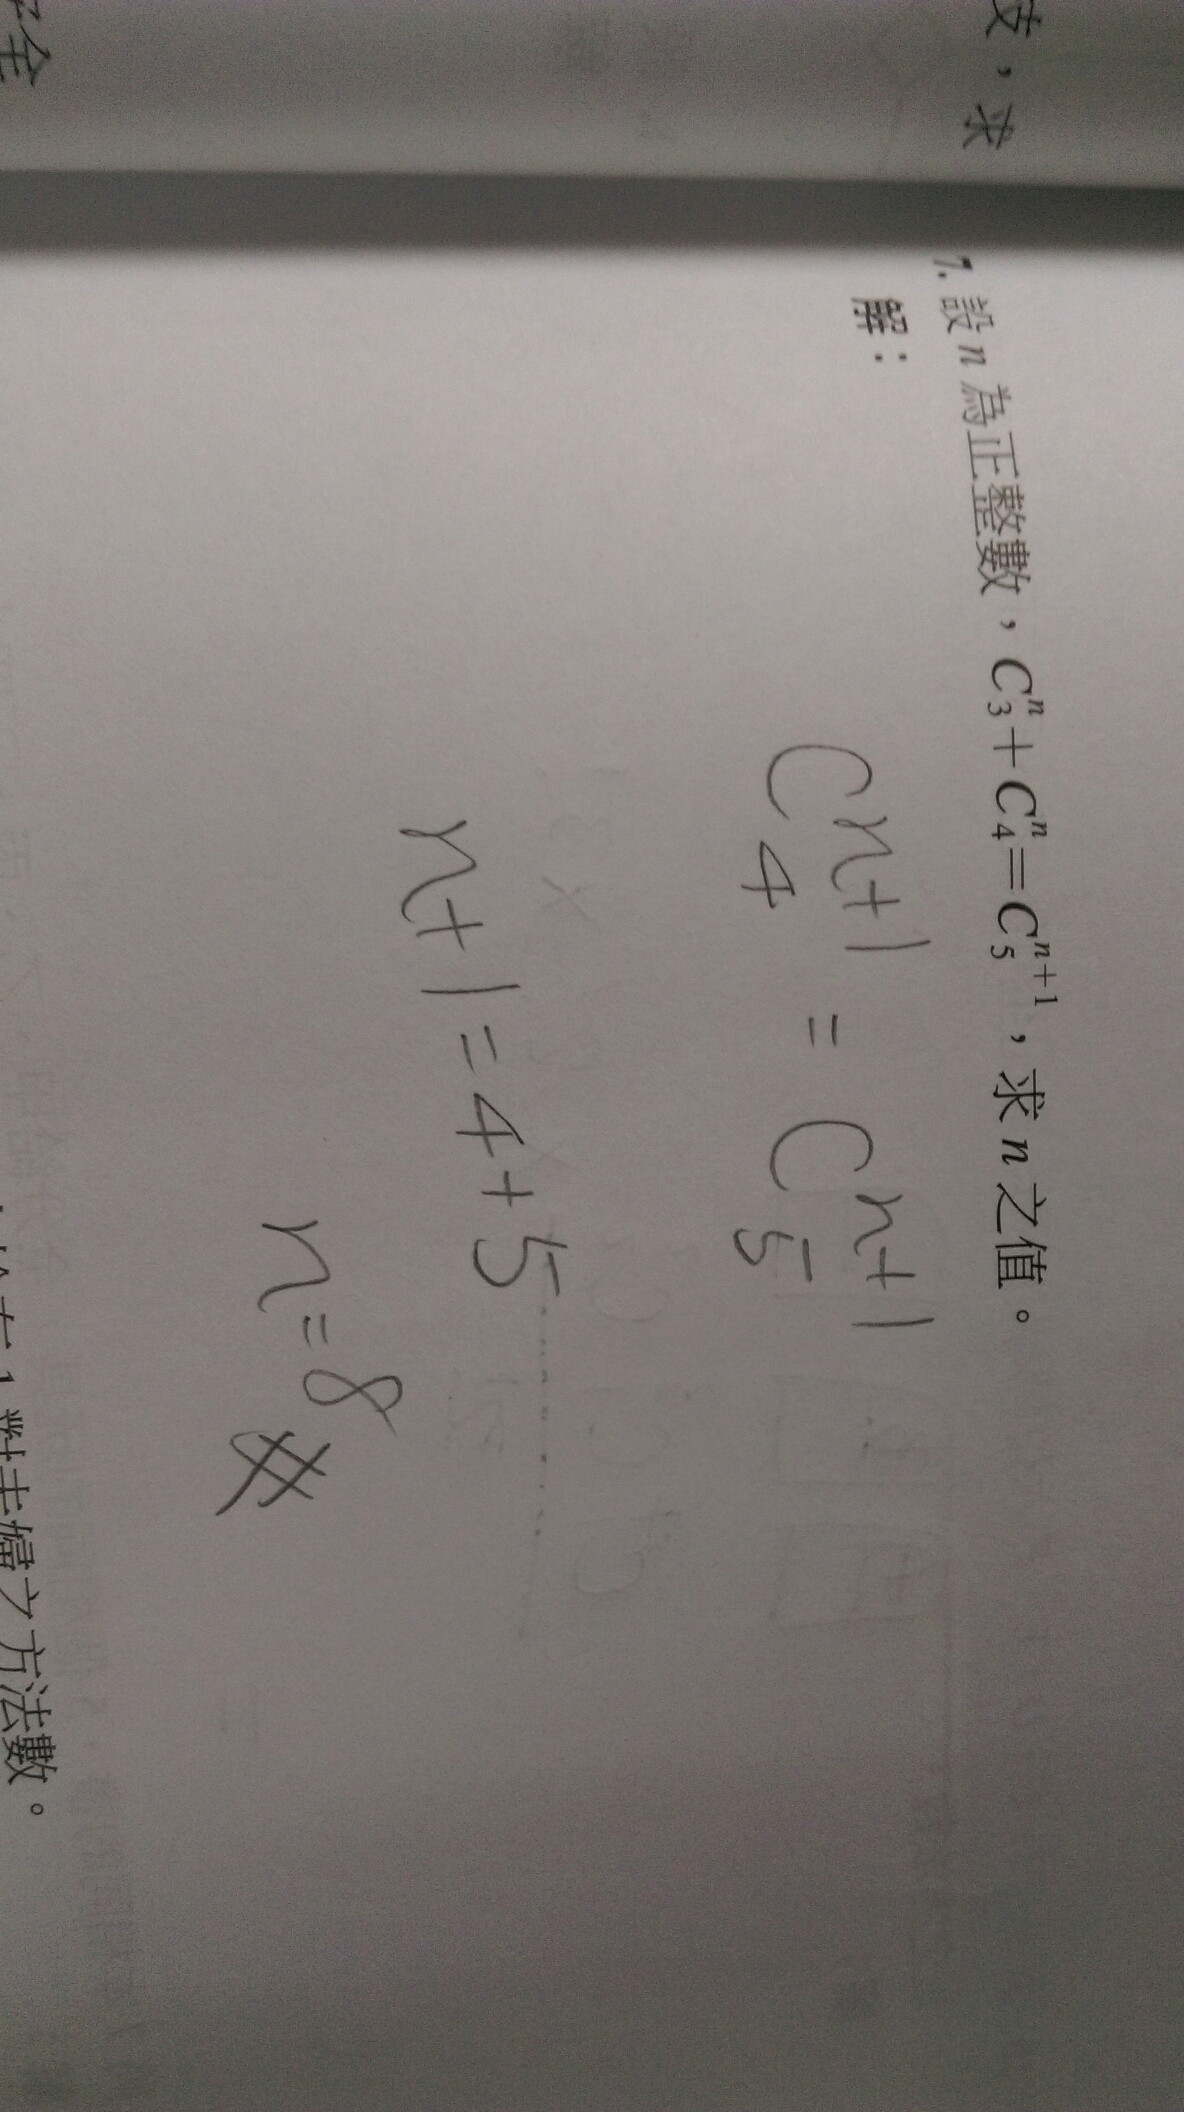 支，求
7. 設 n 為正整數，C₃ⁿ+C₄ⁿ=C₅ⁿ⁺¹，求 n 之值。
解：
C₄ⁿ⁺¹ = C₅ⁿ⁺¹
n+1=4+5
n=8 #
1 對夫婦之方法數。